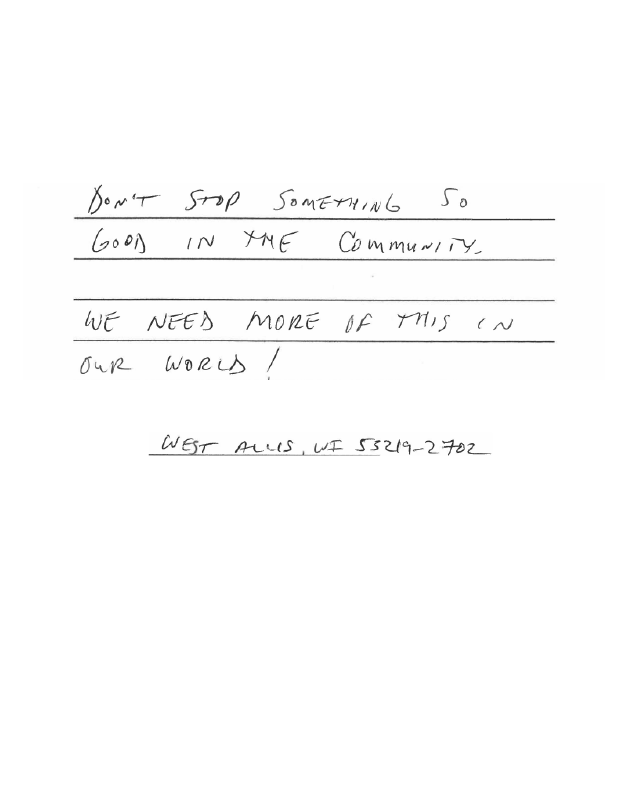 DON'T STOP SOMETHING SO
GOOD IN THE COMMUNITY.
WE NEED MORE OF THIS IN
OUR WORLD!
WEST ALLIS, WI 53219-2702